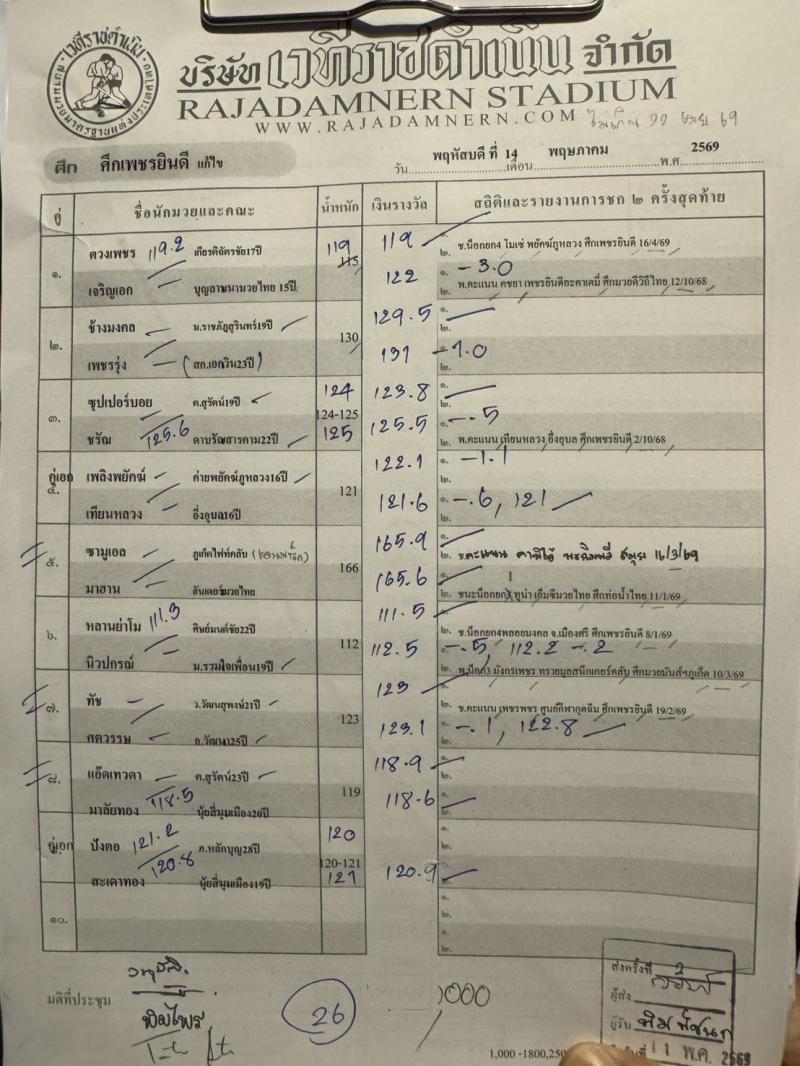 เวทีราชดำเนิน
บริษัท เวทีราชดำเนิน จำกัด
RAJADAMNERN STADIUM
WWW.RAJADAMNERN.COM
69
ศึก ศึกเพชรยินดี แก้ไข
วัน พฤหัสบดี ที่ 14 เดือน พฤษภาคม พ.ศ. 2569
คู่ ชื่อนักมวยและคณะ น้ำหนัก เงินรางวัล สถิติและรายงานการชก ๒ ครั้งสุดท้าย
๑. ดวงเพชร 119.2 เกียรติฉัตรชัย17ปี 119 115 119 ๑. ๒. ช.น็อกยก4 โมเซ่ พยัคฆ์ภูหลวง ศึกเพชรยินดี 16/4/69
เจริญเอก บุญลานนามวยไทย 15ปี 122 ๑. -3.0
๒. พ.คะแนน คชยา เพชรยินดีอะคาเดมี่ ศึกมวยดีวิถีไทย 12/10/68
๒. ช้างมงคล ม.ราชภัฏสุรินทร์19ปี 130 129.5 ๑. ๒.
เพชรรุ่ง (สก.เอกวิน23ปี) 131 ๑. -1.0 ๒.
๓. ซุปเปอร์บอย ต.สุรัตน์19ปี 124 123.8 ๑. ๒.
124-125
ชรัณ 125.6 ดาบรัญสารคาม22ปี 125 125.5 ๑. -.5
๒. พ.คะแนน เทียนหลวง อึ่งอุบล ศึกเพชรยินดี 2/10/68
คู่เอก ๔. เพลิงพยัคฆ์ ค่ายพยัคฆ์ภูหลวง16ปี 121 122.1 ๑. -1.1 ๒.
เทียนหลวง อึ่งอุบล16ปี 121.6 ๑. -.6, 121 ๒.
๕. ซามูเอล ภูเก็ตไฟท์คลับ 166 165.9 ๑. ๒. ช.คะแนน 16/3/69
มาฮาน ลันเตอร์มวยไทย 165.6 ๑.
๒. ชนะน็อกยก1 ทูน่า เอ็มซีมวยไทย ศึกท่อน้ำไทย 11/1/69
๖. หลานย่าโม 111.3 ศิษย์มนต์ชัย22ปี 112 111.5 ๑. ๒. ช.น็อกยก4พลอยมงคล จ.เมืองศรี ศึกเพชรยินดี 8/1/69
นิวปกรณ์ ม.รวมใจเพื่อน19ปี 112.5 ๑. -.5, 112.2 -.2
๒. พ.น็อก3 มังกรเพชร ทรายมูลสนีกเกอร์คลับ ศึกมวยมันส์ฯภูเก็ต 10/3/69
๗. ทัช ว.วัฒนสุพงษ์21ปี 123 123 ๑. ๒. ช.คะแนน เพชรพชร ศูนย์กีฬากุดฉิม ศึกเพชรยินดี 19/2/69
ศตวรรษ อ.วัฒนา25ปี 123.1 ๑. -.1, 122.8 ๒.
๘. แอ๊ดเทวดา ต.สุรัตน์23ปี 119 118.9 ๑. ๒.
มาลัยทอง 118.5 นุ้ยสี่มุมเมือง20ปี 118.6 ๑. ๒.
คู่เอก ปังตอ 121.2 ภ.หลักบุญ28ปี 120 ๑. ๒.
120-121
สะเดาทอง 120.8 นุ้ยสี่มุมเมือง19ปี 121 120.9 ๑. ๒.
๑๐. ๑. ๒.
๑. ๒.
มติที่ประชุม
พิมไพร
26
1000
1,000 -1800,250
ส่งครั้งที่ 2
ผู้ส่ง
ผู้รับ พิมพ์ชนก
วันที่ 11 พ.ค. 2569